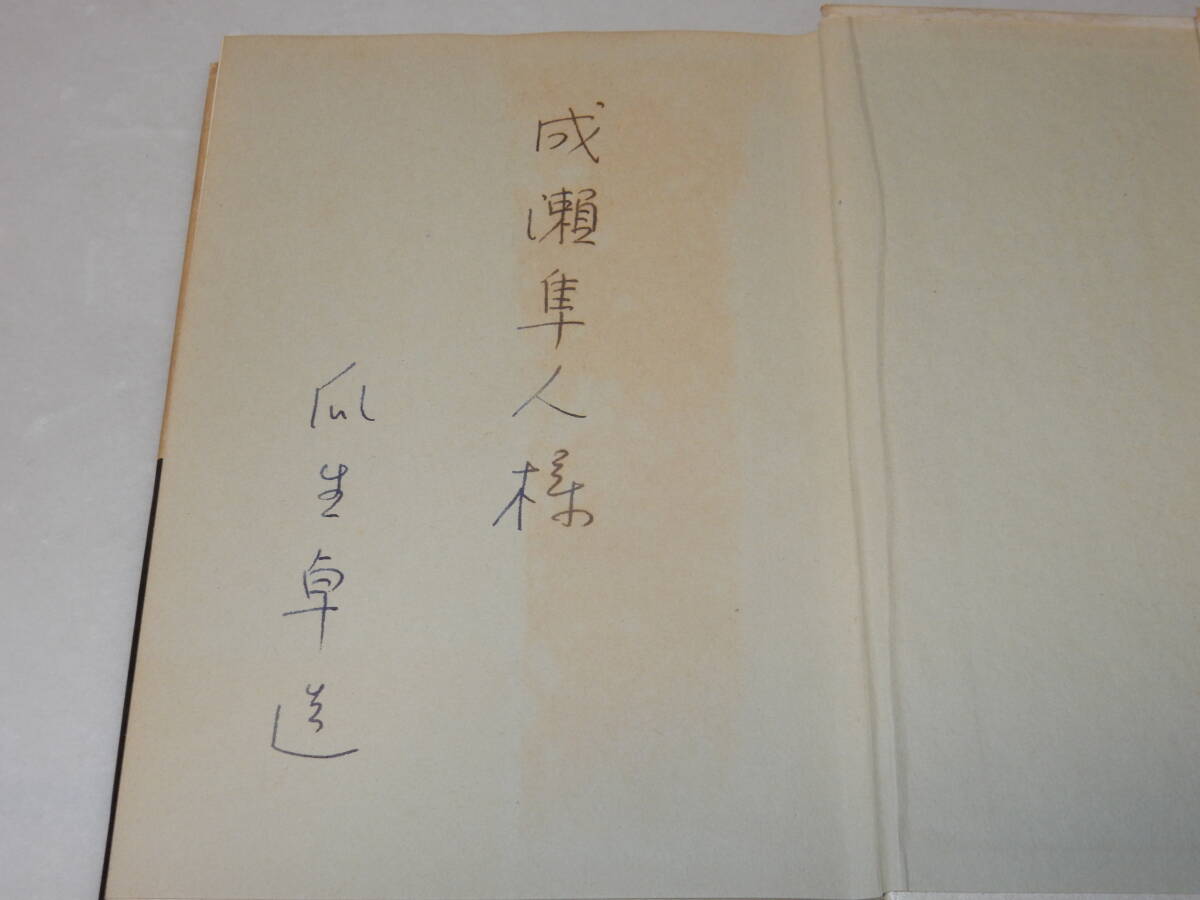 成瀬隼人様
瓜生卓造